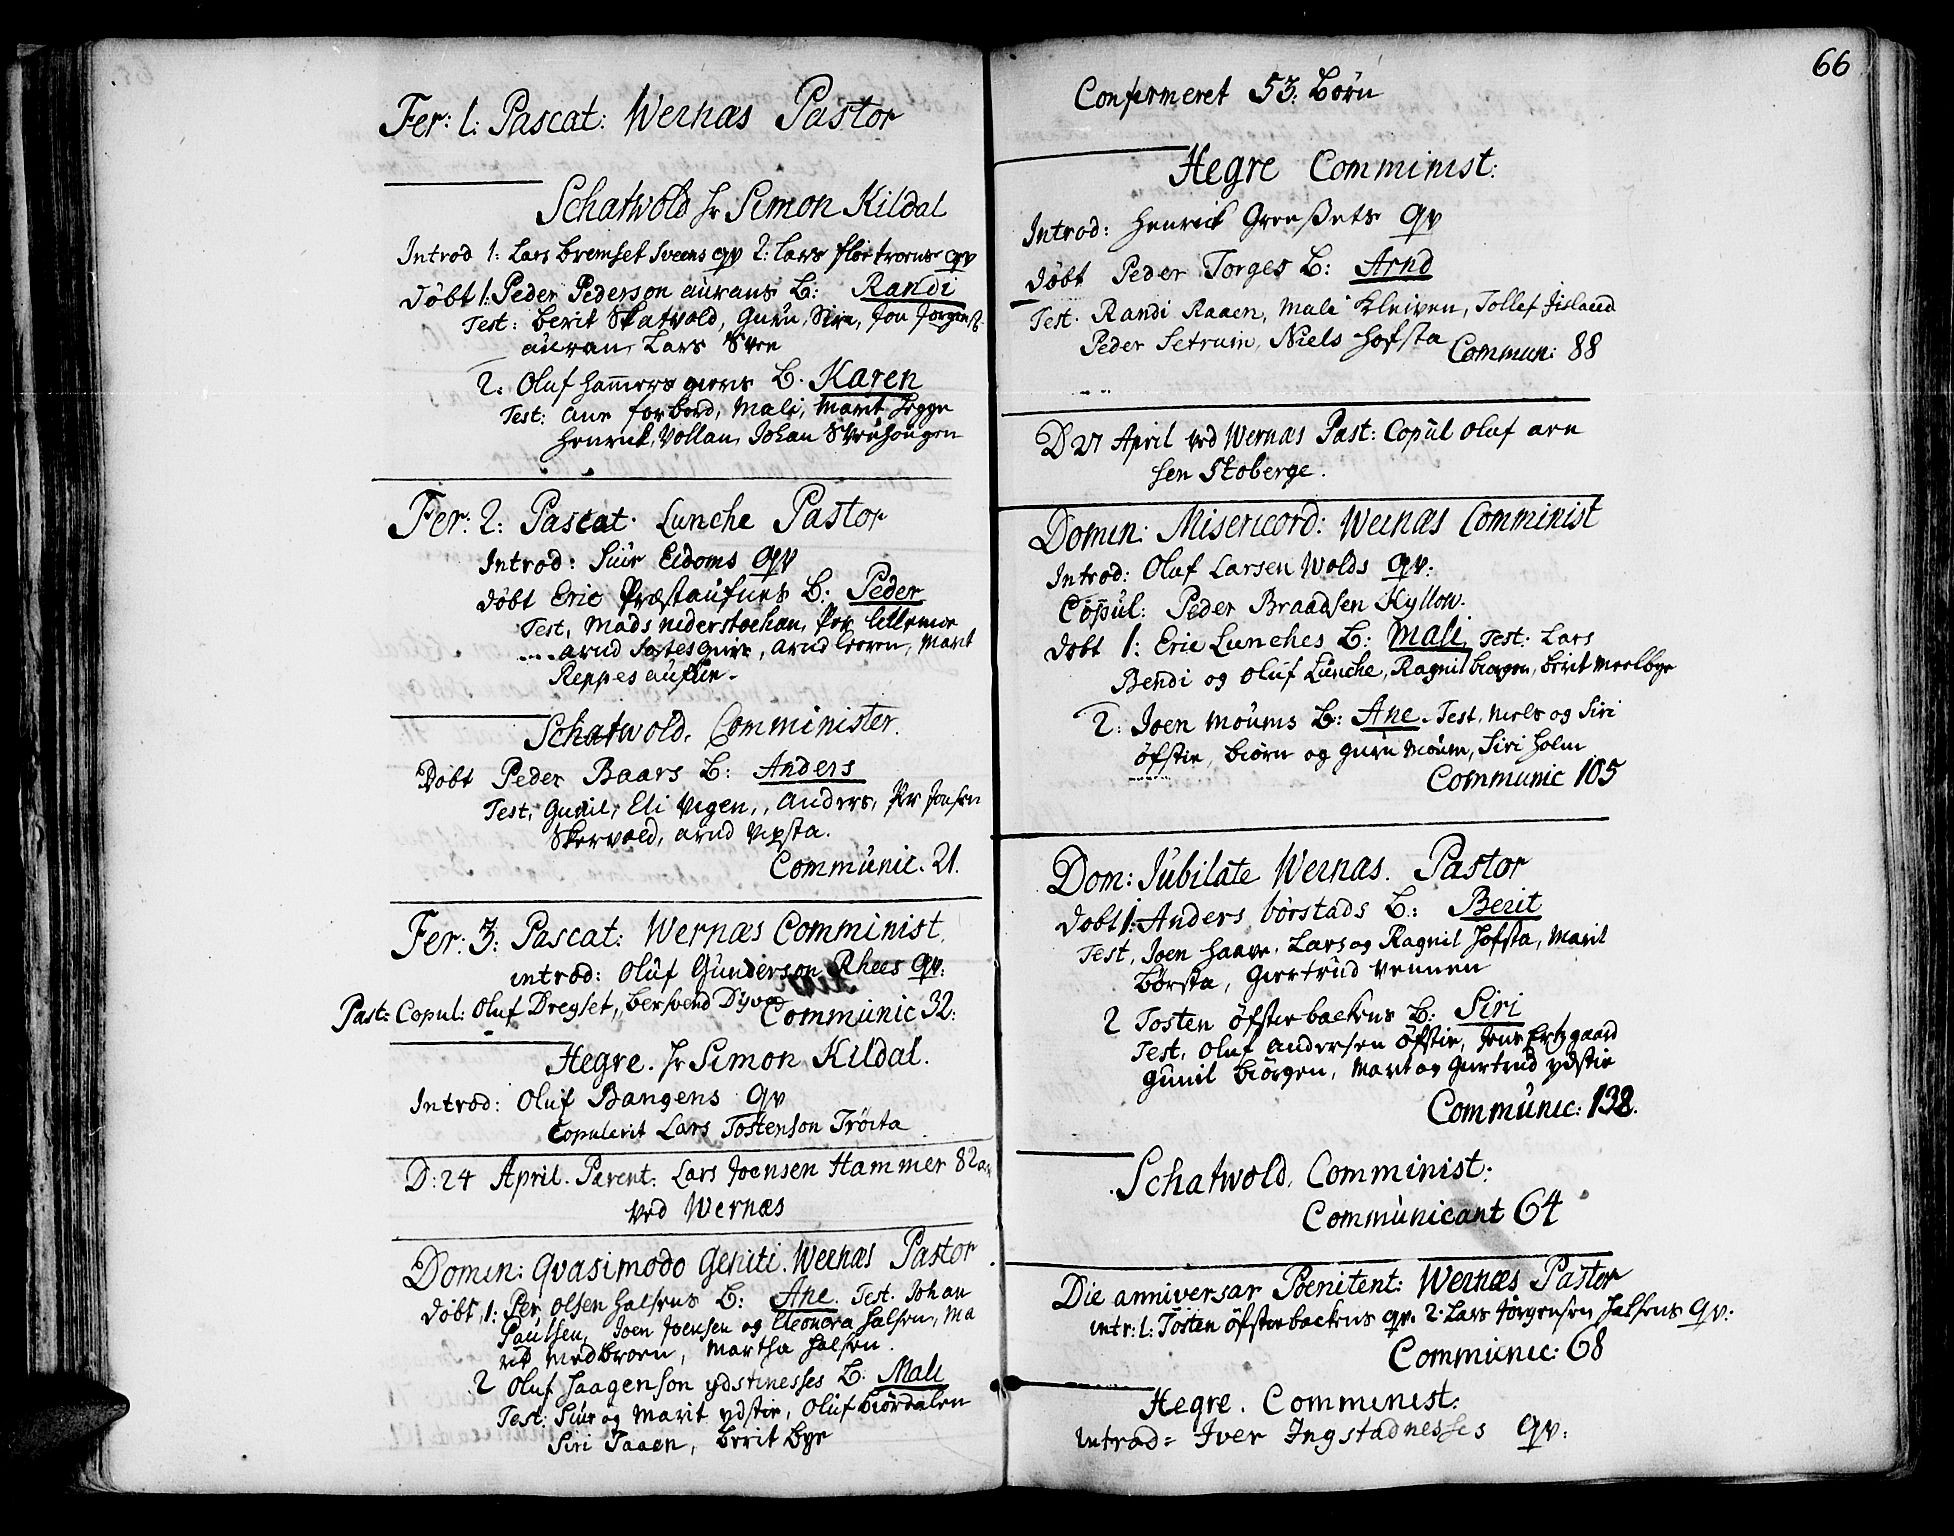 Fer: 1: Pascat: Wernæs Pastor
Schatwold hr Simon Kildal
Introd 1: Lars Bremset Sveens qv 2: Lars qv
Døbt 1: Peder Pederson aurans B: Randi
Test: Berit Skatvold, Guru, Siri, Jon Jorgens
auran, Lars Sven
2: Oluf Hammers B. Karen
Test: Ane forbord, Mali, Marit Hegge
Henrick, Vollan, Johan
Fer: 2: Pascat. Lunche Pastor
Introd: Siur Eidoms qv
døbt Eric Præstaufnes B: Peder
Test, Mads nederstoehan, Per Lillemoe
Arnd, Arnd Leeren, Marit
Reppesauflie
Schatwold. Comminister.
Døbt Peder Baars B: Anders
Test, Gunil, Eli Vegen,, Anders, Per Jonsen
Skervold, arnd Vepsta.
Communic. 21.
Fer: 3: Pascat: Wernæs Comminist.
introd: Oluf Gunderson Rhees qv:
Past: Copul: Oluf Dregset, Bersvend Dyva
Communic 32:
Hegre. hr Simon Kildal.
Introd: Oluf Bangens qv
Copulerit Lars Tostenson Trøita
D: 24 April. Parent: Lars Joensen Hammer 82 an
ved Wernæs
Domin: Qvasimodo Geniti. Wernæs Pastor
døbt, 1: Per Olsen Halsens B: Ane. Test. Johan
Paulsen, Joen Joensen og Eleonora Halsen, Ma
rit Medbroen, Martha Halsen.
2 Oluf Haagenson ydstinesses B: Mali
Test: Siur og Marit ydstie, Oluf Biørdalen
Siri Taaen, Berit Bye
66
Confirmeret 53: Børn
Hegre Comminist:
Introd: Henrick qv
døbt Peder Torges B: Arnd
Test. Randi Raaen, Mali Kleiven, Tollef
Peder Setruin, Niels Hofsta Commun: 88
D 27 April ved Wernæs Past: Copul Oluf arn
sen Stoberge.
Domin: Misericord: Wernæs Comminist
Introd: Oluf Larsen Wolds qv:
Copul: Peder Braadsen Kyllow.
døbt 1: Eric Lunches B: Mali, Test: Lars
Bendi og Oluf Lunche, Ragnil Biørgen, Berit Meelbye
2: Joen Moums B: Ane. Test, Niels og Siri
øfstie, Biørn og Guru Moum, Siri Holm
Communic 105
Dom: Jubilate Wernæs. Pastor
døbt 1: Anders børstads B: Berit
Test, Joen Haave, Lars og Ragnil Hofsta, Marit
Børsta, Giertrud Vennen
2 Tosten øfstiebackens B: Siri
Test, Oluf Andersen øfstie, Jens Ertzgaard
Gunil Biørgen, Marit og Giertrud ydstie
Communic: 138.
Schatwold. Comminist:
Communicant 64
Die anniversar Poenitent: Wernæs Pastor
intr: 1: Tosten øfstiebackens qv. 2: Lars Jørgensen Halsens qv:
Communic: 68
Hegre. Comminist:
introd: Iver Ingstadnesses qv: